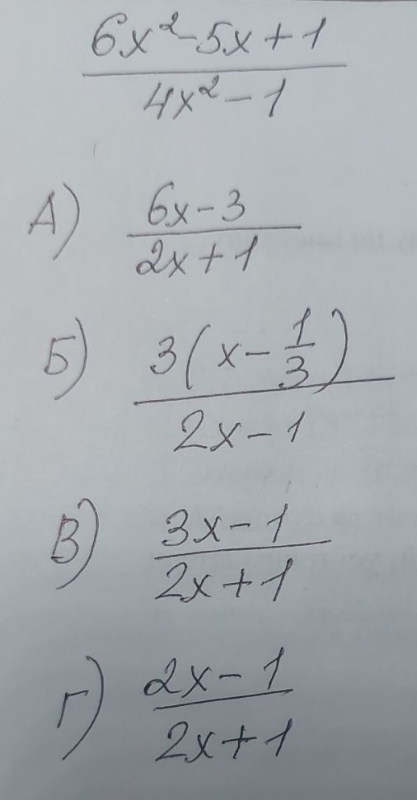 6x²-5x+1
4x²-1
А) 6x-3
2x+1
Б) 3(x-1/3)
2x-1
В) 3x-1
2x+1
Г) 2x-1
2x+1